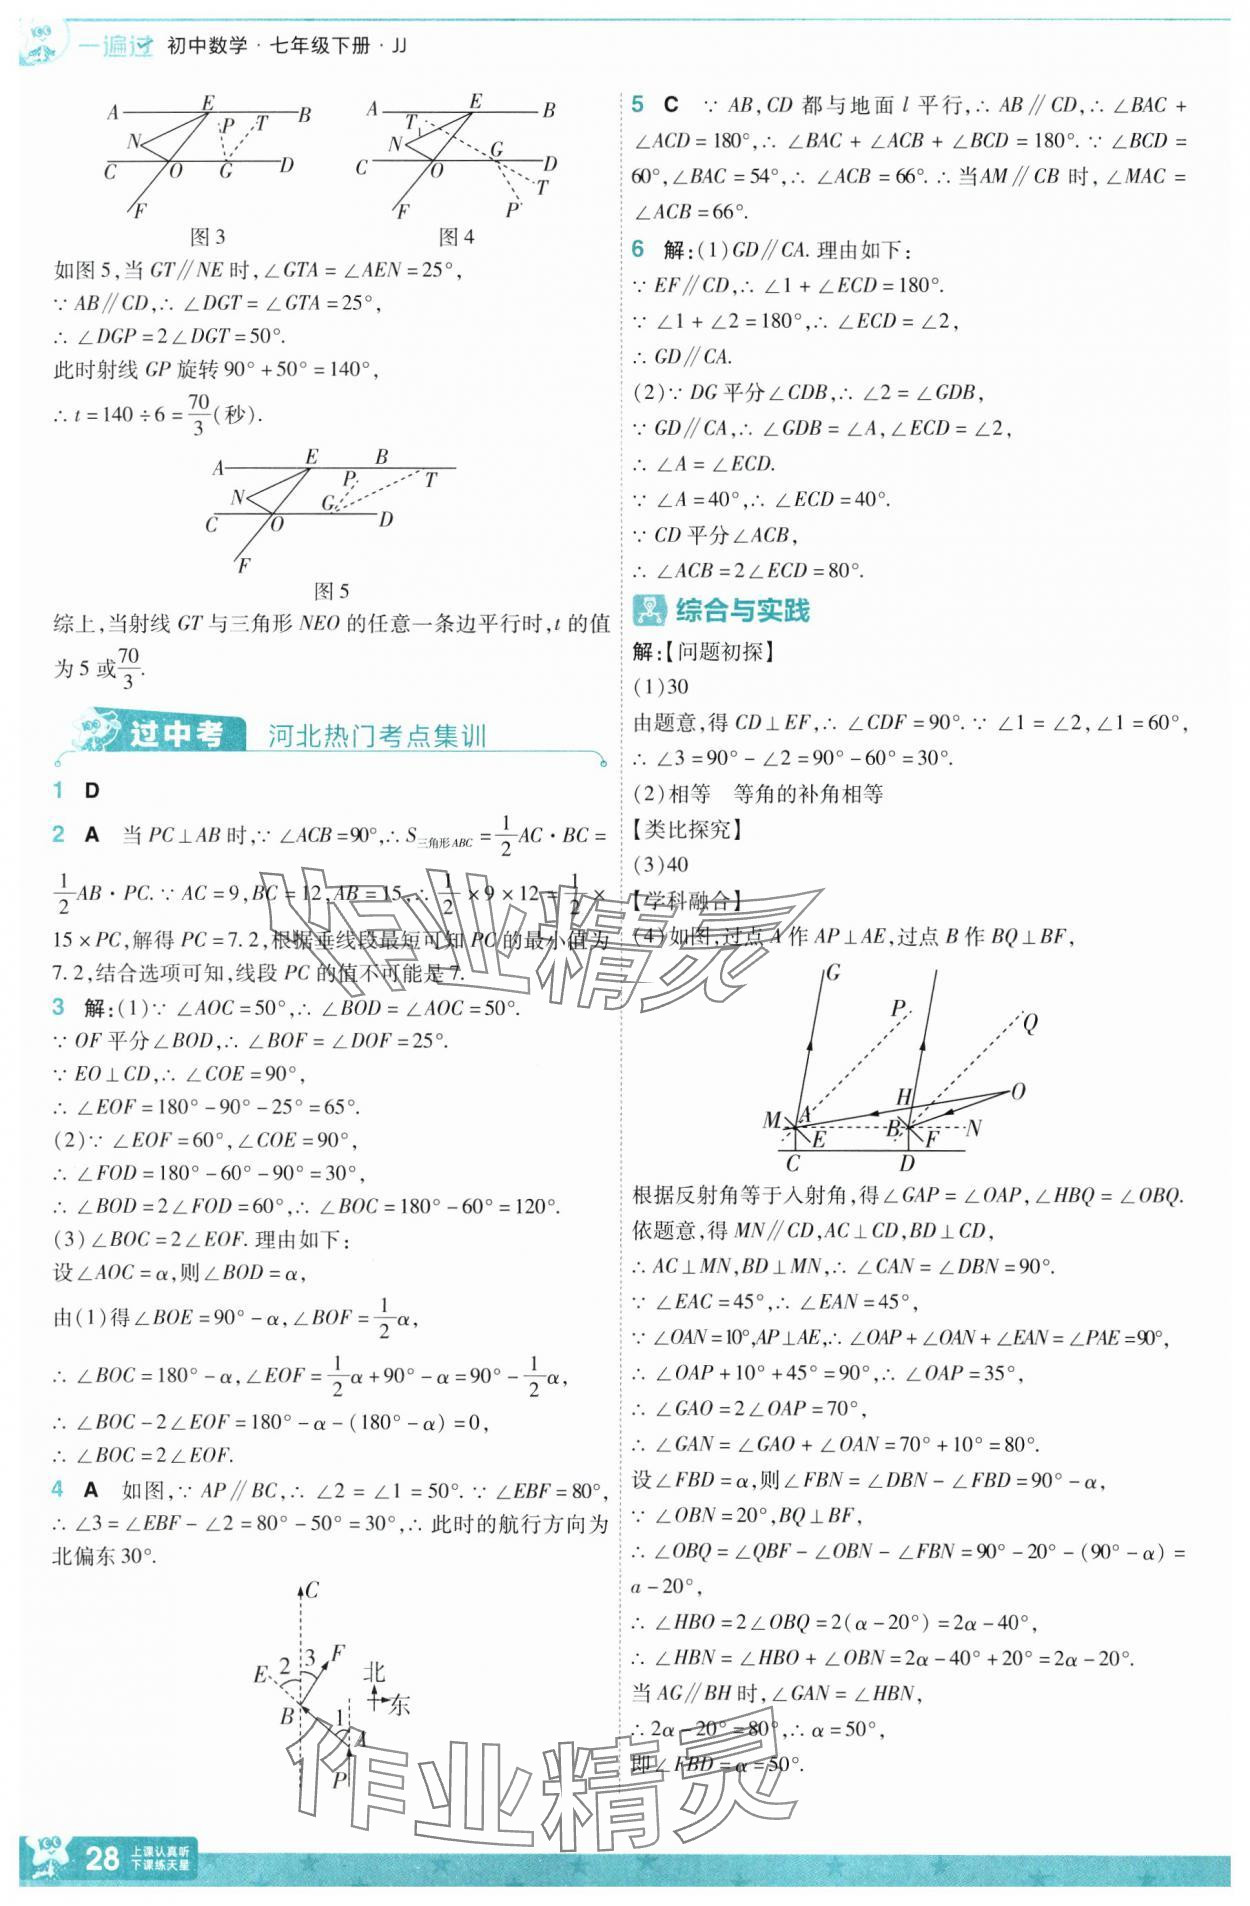 一遍过 初中数学·七年级下册·JJ
A E B
P T
N
C O G D
F
图3
A T E B
N 1
C O G D
T
F P
图4
如图5,当GT∥NE时,∠GTA=∠AEN=25°,
∵AB∥CD,∴∠DGT=∠GTA=25°,
∴∠DGP=2∠DGT=50°.
此时射线GP旋转90°+50°=140°,
∴t=140÷6=70/3(秒).
A E B
P T
N
G
C O D
F
图5
综上,当射线GT与三角形NEO的任意一条边平行时,t的值
为5或70/3.
过中考 河北热门考点集训
1 D
2 A 当PC⊥AB时,∵∠ACB=90°,∴S三角形ABC=1/2AC·BC=
1/2AB·PC.∵AC=9,BC=12,AB=15,∴1/2×9×12=1/2×
15×PC,解得PC=7.2,根据垂线段最短可知PC的最小值为
7.2,结合选项可知,线段PC的值不可能是7.
3 解:(1)∵∠AOC=50°,∴∠BOD=∠AOC=50°.
∵OF平分∠BOD,∴∠BOF=∠DOF=25°.
∵EO⊥CD,∴∠COE=90°,
∴∠EOF=180°-90°-25°=65°.
(2)∵∠EOF=60°,∠COE=90°,
∴∠FOD=180°-60°-90°=30°,
∴∠BOD=2∠FOD=60°,∴∠BOC=180°-60°=120°.
(3)∠BOC=2∠EOF.理由如下:
设∠AOC=α,则∠BOD=α,
由(1)得∠BOE=90°-α,∠BOF=1/2α,
∴∠BOC=180°-α,∠EOF=1/2α+90°-α=90°-1/2α,
∴∠BOC-2∠EOF=180°-α-(180°-α)=0,
∴∠BOC=2∠EOF.
4 A 如图,∵AP∥BC,∴∠2=∠1=50°.∵∠EBF=80°,
∴∠3=∠EBF-∠2=80°-50°=30°,∴此时的航行方向为
北偏东30°.
C
E 2 3 F
北
东
B
1 A
P
5 C ∵AB,CD都与地面l平行,∴AB∥CD,∴∠BAC+
∠ACD=180°,∴∠BAC+∠ACB+∠BCD=180°.∵∠BCD=
60°,∠BAC=54°,∴∠ACB=66°.∴当AM∥CB时,∠MAC=
∠ACB=66°.
6 解:(1)GD∥CA.理由如下:
∵EF∥CD,∴∠1+∠ECD=180°.
∵∠1+∠2=180°,∴∠ECD=∠2,
∴GD∥CA.
(2)∵DG平分∠CDB,∴∠2=∠GDB,
∵GD∥CA,∴∠GDB=∠A,∠ECD=∠2,
∴∠A=∠ECD.
∵∠A=40°,∴∠ECD=40°.
∵CD平分∠ACB,
∴∠ACB=2∠ECD=80°.
综合与实践
解:【问题初探】
(1)30
由题意,得CD⊥EF,∴∠CDF=90°.∵∠1=∠2,∠1=60°,
∴∠3=90°-∠2=90°-60°=30°.
(2)相等 等角的补角相等
【类比探究】
(3)40
【学科融合】
(4)如图,过点A作AP⊥AE,过点B作BQ⊥BF,
G
P
Q
H O
M A B N
E F
C D
根据反射角等于入射角,得∠GAP=∠OAP,∠HBQ=∠OBQ.
依题意,得MN∥CD,AC⊥CD,BD⊥CD,
∴AC⊥MN,BD⊥MN,∴∠CAN=∠DBN=90°.
∵∠EAC=45°,∴∠EAN=45°,
∵∠OAN=10°,AP⊥AE,∴∠OAP+∠OAN+∠EAN=∠PAE=90°,
∴∠OAP+10°+45°=90°,∴∠OAP=35°,
∴∠GAO=2∠OAP=70°,
∴∠GAN=∠GAO+∠OAN=70°+10°=80°.
设∠FBD=α,则∠FBN=∠DBN-∠FBD=90°-α,
∵∠OBN=20°,BQ⊥BF,
∴∠OBQ=∠QBF-∠OBN-∠FBN=90°-20°-(90°-α)=
a-20°,
∴∠HBO=2∠OBQ=2(α-20°)=2α-40°,
∴∠HBN=∠HBO+∠OBN=2α-40°+20°=2α-20°.
当AG∥BH时,∠GAN=∠HBN,
∴2α-20°=80°,∴α=50°,
即∠FBD=α=50°.
作业精灵
作业精灵
28 上课认真听
下课练天星